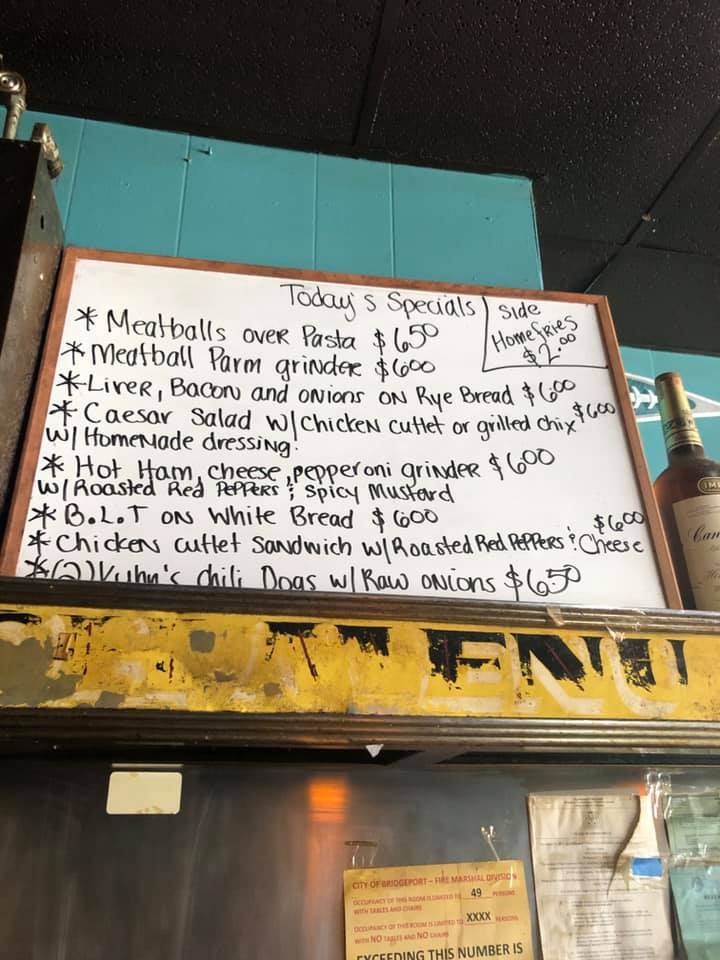 Today's Specials
Side
Homefries
$2.00
* Meatballs over Pasta $6.50
* Meatball Parm grinder $6.00
* Liver, Bacon and onions on Rye Bread $6.00
* Caesar Salad w/ Chicken cutlet or grilled chix $6.00
w/ Homemade dressing.
* Hot Ham, cheese, pepperoni grinder $6.00
w/ Roasted Red Peppers & Spicy Mustard
* B.L.T on White Bread $6.00
* Chicken cutlet Sandwich w/ Roasted Red Peppers & Cheese $6.00
* (2) Kuhn's chili Dogs w/ Raw onions $6.50
ENU
CITY OF BRIDGEPORT – FIRE MARSHAL DIVISION
OCCUPANCY OF THIS ROOM IS LIMITED TO 49 PERSONS
WITH TABLES AND CHAIRS
OCCUPANCY OF THIS ROOM IS LIMITED TO XXXX PERSONS
WITH NO TABLES AND NO CHAIRS
EXCEEDING THIS NUMBER IS